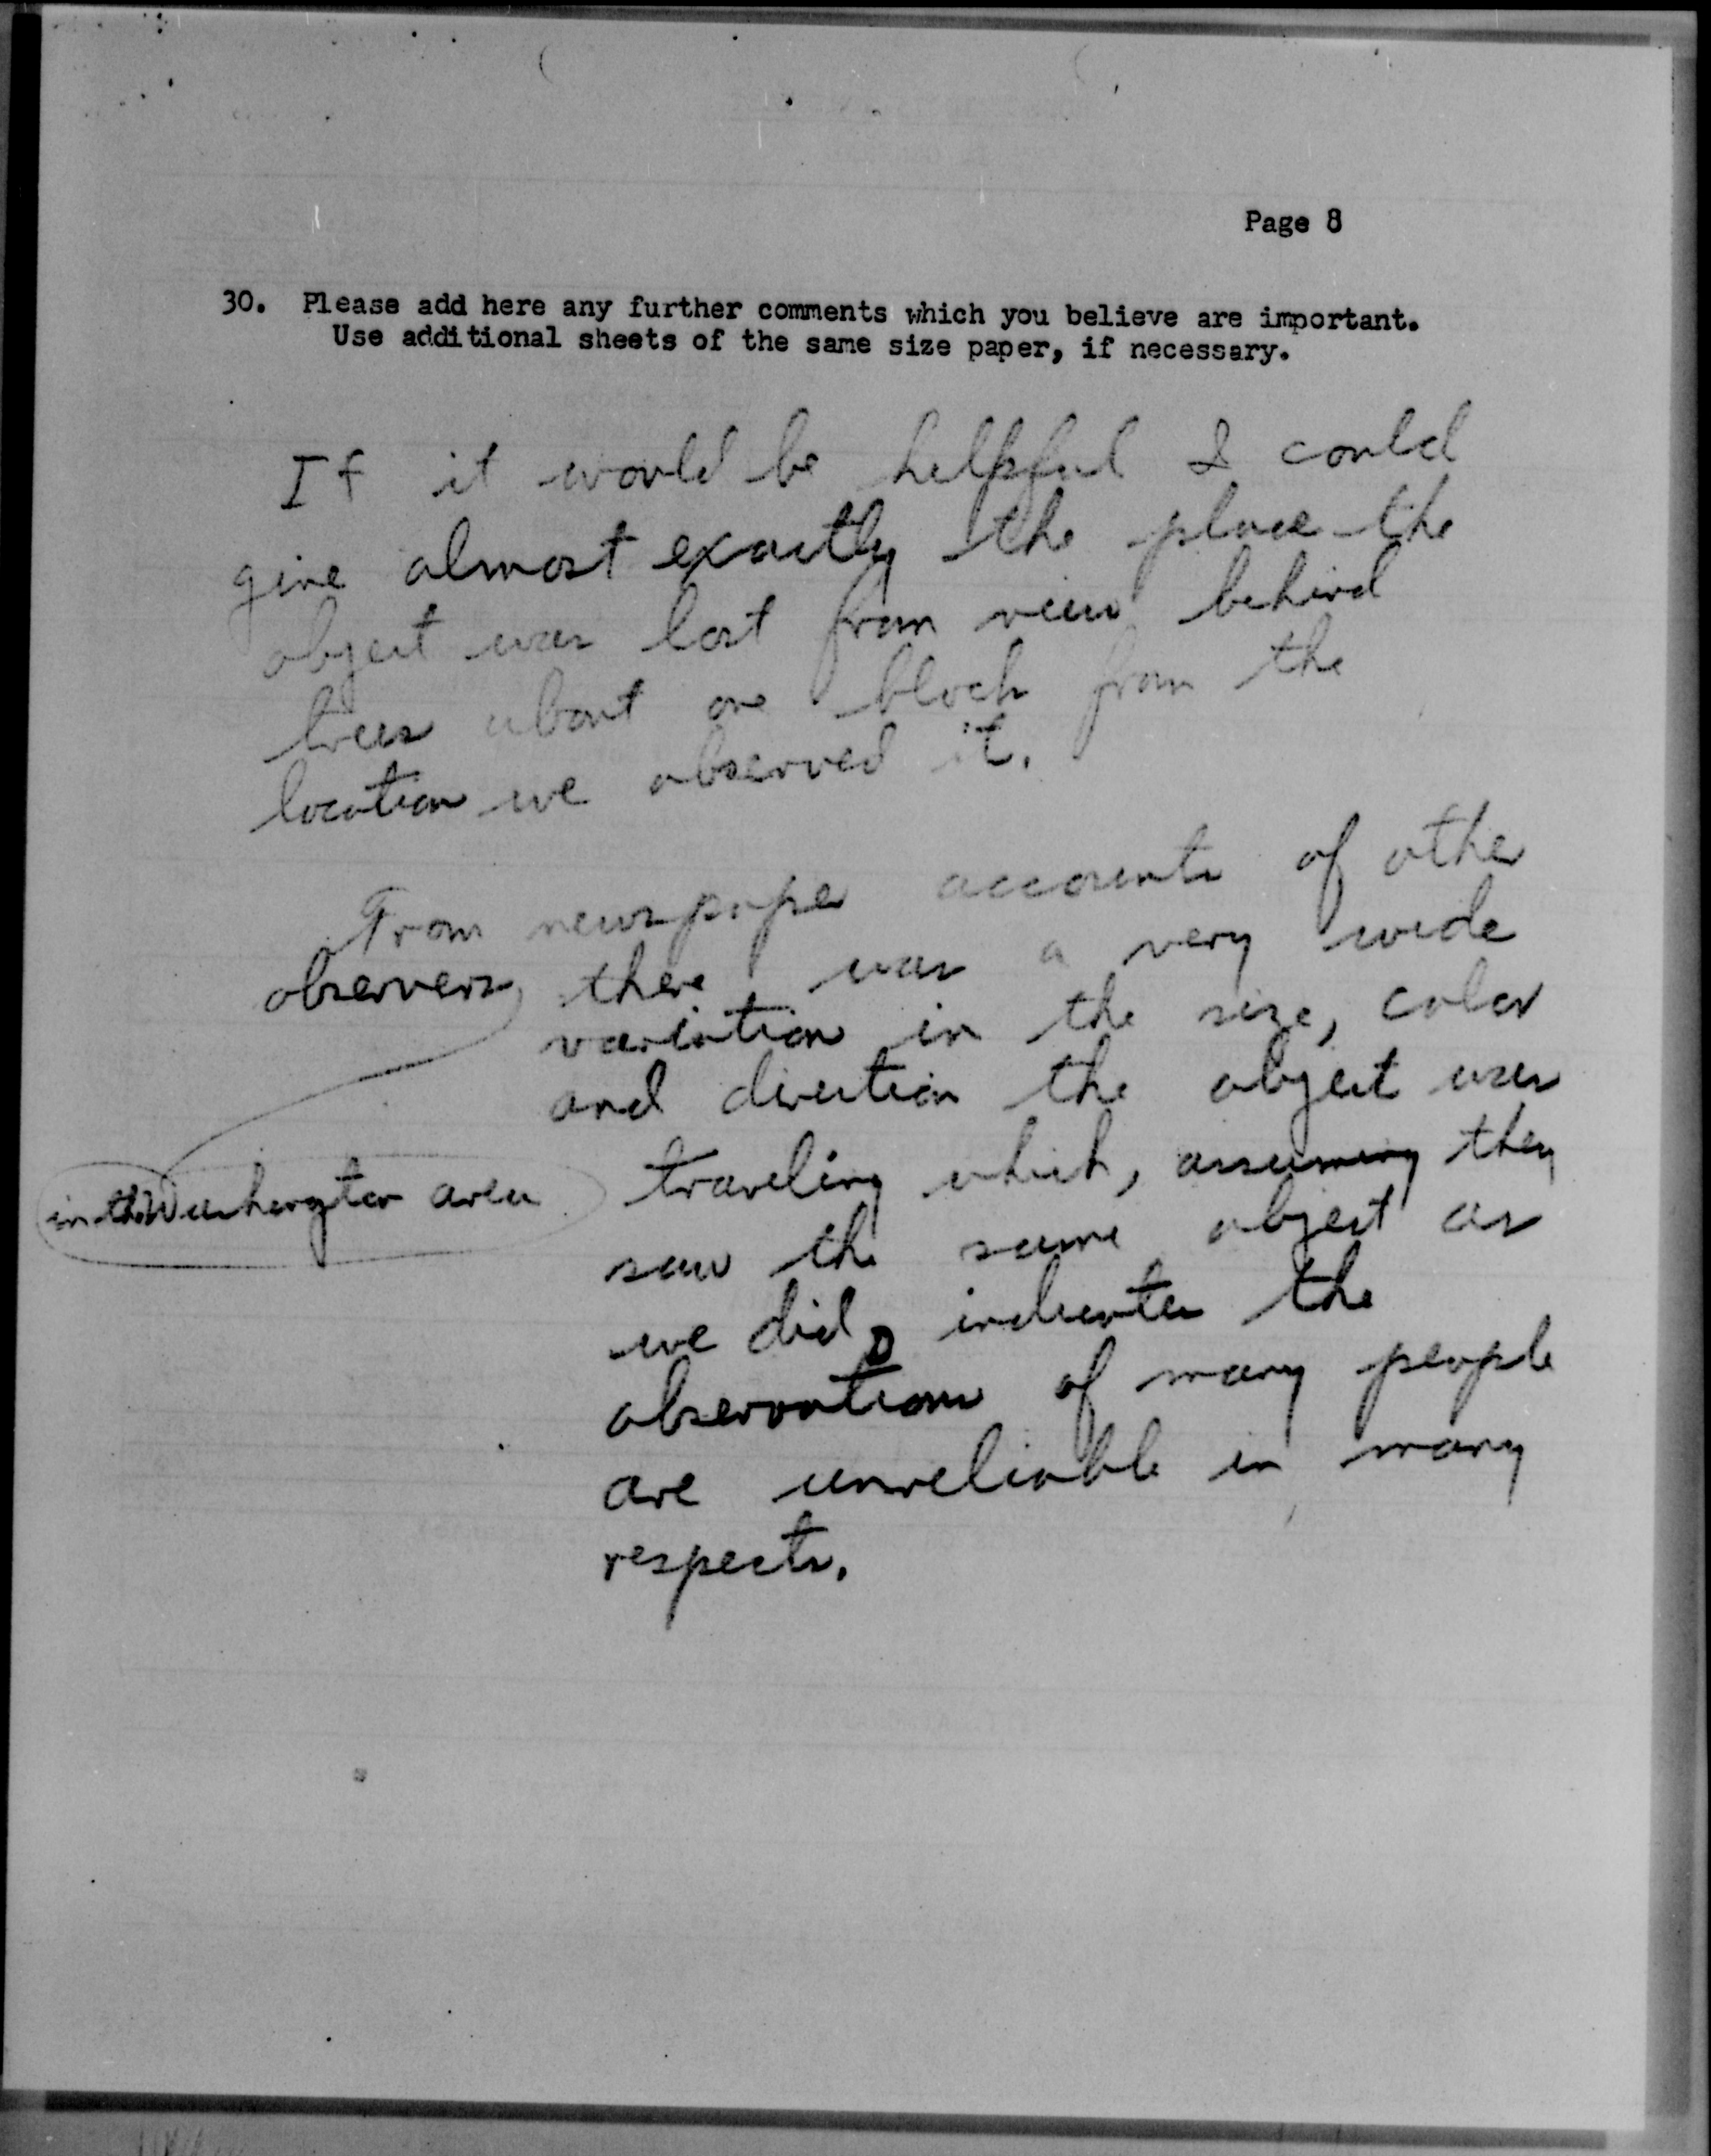 Page 8
30. Please add here any further comments which you believe are important.
Use additional sheets of the same size paper, if necessary.
If it would be helpful I could
give almost exactly the place the
object was lost from view behind
trees about one block from the
location we observed it.
From newspaper accounts of other
observers, there was a very wide
variation in the size, color
and direction the object was
in the Washington area
traveling which, assuming they
saw the same object as
we did, indicates the
observations of many people
are unreliable in many
respects.